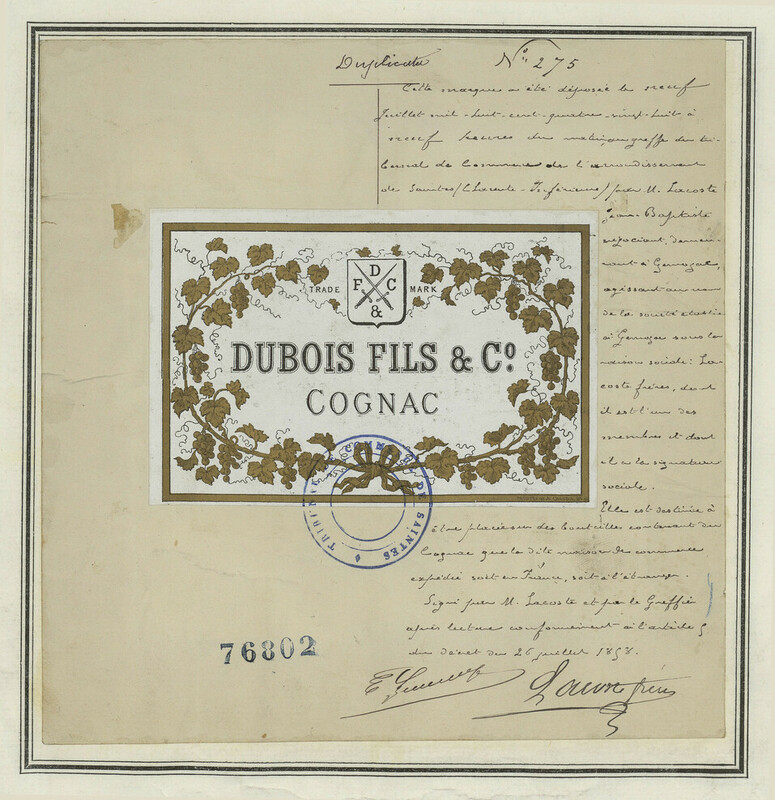 Duplicata
N° 275
Cette marque a été déposée le neuf
Juillet mil-huit-cent-quatre-vingt-huit à
neuf heures du matin au greffe du tri-
bunal de Commerce de l'arrondissement
de Saintes (Charente-Inférieure) par M. Lacoste
Jean-Baptiste
négociant, demeu-
rant à Gemozac,
agissant au nom
de la société établie
à Gemozac sous la
raison sociale: La-
coste frères, dont
il est l'un des
membres et dont
il a la signature
sociale.
Elle est destinée à
être placée sur des bouteilles contenant du
Cognac que la dite maison de commerce
expédie soit en France, soit à l'étranger.
Signé par M. Lacoste et par le Greffier
après lecture conformément à l'article 5
du décret du 26 juillet 1858.
F D C &
TRADE MARK
DUBOIS FILS & Cº
COGNAC
TRIBUNAL DE COMMERCE DE SAINTES
76802
Lacoste frères